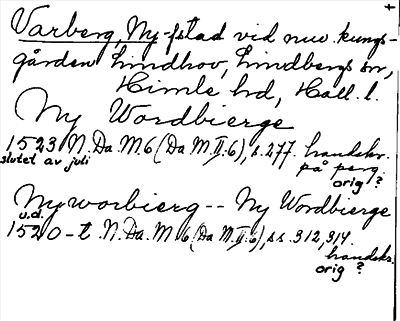 +
Varberg, Ny-stad vid nuv. kungs-
gården Lindhov, Lindbergs sn,
Himle hd, Hall. l.
Ny Wordbierge
1523 N.Da.M.6 (Da M.II:6), s.277. handskr.
slutet av juli
på perg.
orig ?
Ny worbierg -- Ny Wordbierge
u.d.
1520-t. N.Da.M 6 (Da M.II:6), ss.312,314.
handskr.
orig ?